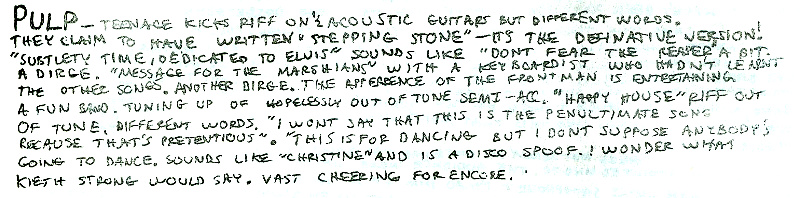 PULP - TEENAGE KICKS RIFF ON ½ ACOUSTIC GUITARS BUT DIFFERENT WORDS.
THEY CLAIM TO HAVE WRITTEN "STEPPING STONE" - ITS THE DEFINATIVE VERSION!
"SUBTLETY TIME, DEDICATED TO ELVIS" SOUNDS LIKE "DONT FEAR THE REAPER" A BIT.
A DIRGE. "MESSAGE FOR THE MARSHIANS" WITH A KEYBOARDIST WHO HADN'T LEARNT
THE OTHER SONGS. ANOTHER DIRGE. THE APPERENCE OF THE FRONTMAN IS ENTERTAINING
A FUN BAND. TUNING UP OF HOPELESSLY OUT OF TUNE SEMI-ACC. "HAPPY HOUSE" RIFF OUT
OF TUNE, DIFFERENT WORDS. "I WONT SAY THAT THIS IS THE PENULTIMATE SONG
BECAUSE THAT'S PRETENTIOUS". "THIS IS FOR DANCING BUT I DONT SUPPOSE ANYBODY'S
GOING TO DANCE. SOUNDS LIKE "CHRISTINE" AND IS A DISCO SPOOF. I WONDER WHAT
KIETH STRONG WOULD SAY. VAST CHEERING FOR ENCORE.